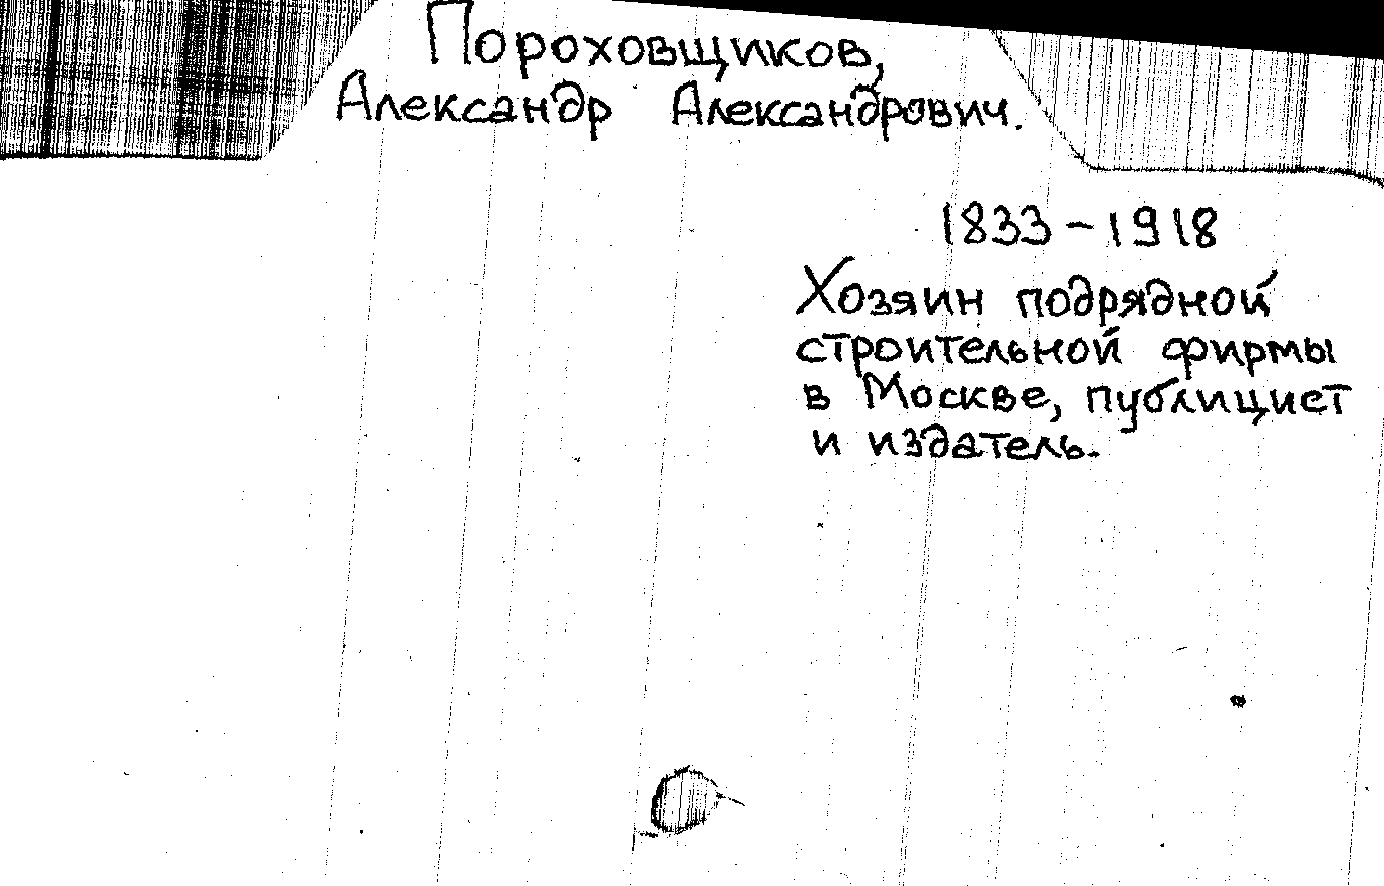 Пороховщиков,
Александр Александрович.
1833-1918
Хозяин подрядной
строительной фирмы
в Москве, публицист
и издатель.